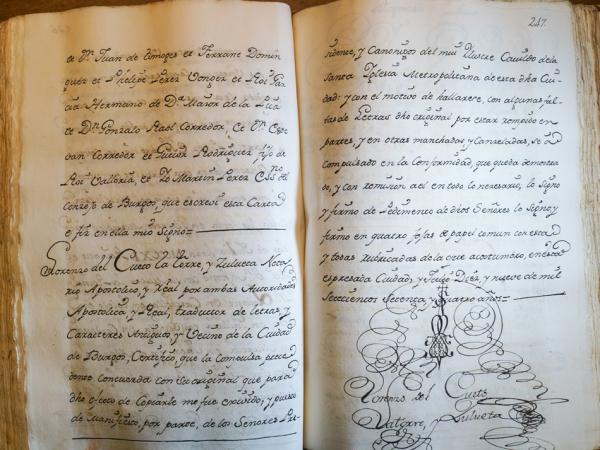 et Dn. Juan de Limoges et Ferrant Domin
guez et Phelipe Perez Vonser et Roi Gar
cia Hermano de Da. Maior de la Pila
et Dn. Gonzalo Rael Corredor, et Dn. Este
van corredor et Guion Rodriguez fijo de
Roi Valloria, et Io Martin Perez Essno. del
conzejo de Burgos, que escreui esta Carta
e fiz en ella mio Signo=
Lorenzo del Cueto la Torre y Zulueta Nota
rio Apostolico y Real por ambas Autoridades
Apostolica y Real, traductor de letras, y
Caracteres Antiguos y Vecino de la Ciudad
de Burgos, Certifico, que la Compulsa prece
dente concuerda con el original que para
dho efecto de Copiarle me fue exsivido, y puesto
de manifiesto, por parte, de los Señores Pre-
247
sidente, y Canonigos del mui Ilustre Cavildo de la
Santa Iglesia Metropolitana de esta dha Ciu-
dad: y con el motivo de hallarse, con algunas fal-
tas de Letras dho original por estar rompido en
partes, y en otras manchadas y Canzeladas, se a
Compulsado en la Conformidad, que queda demostra
do, y con remision a el en todo lo nesesario, lo Signo
y firmo de Pedimento de dhos Señores lo Signo, y
firmo en quatro fojas de papel comun con esta
y todas rubricadas de la que acostumbro, en esta
espresada Ciudad, y Diez, y nueve de mil
Setecientos Sesenta, y quatro años=
Lorenzo del Cueto
Latorre, y Zulueta